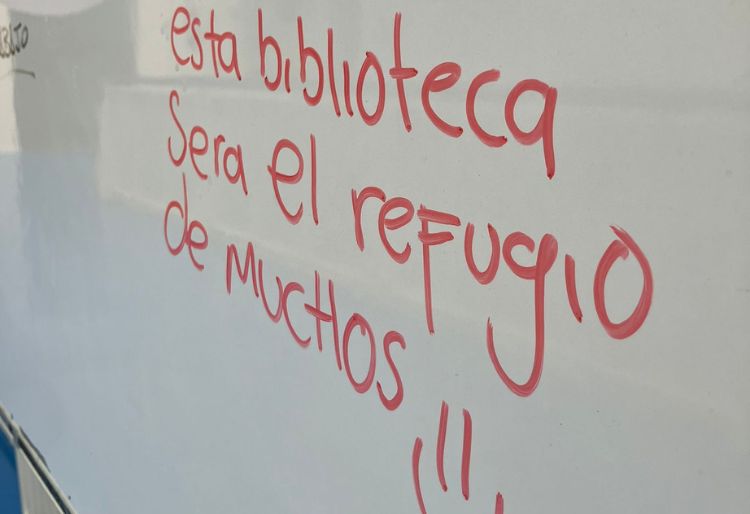 esta biblioteca
Sera el refugio
de muchos